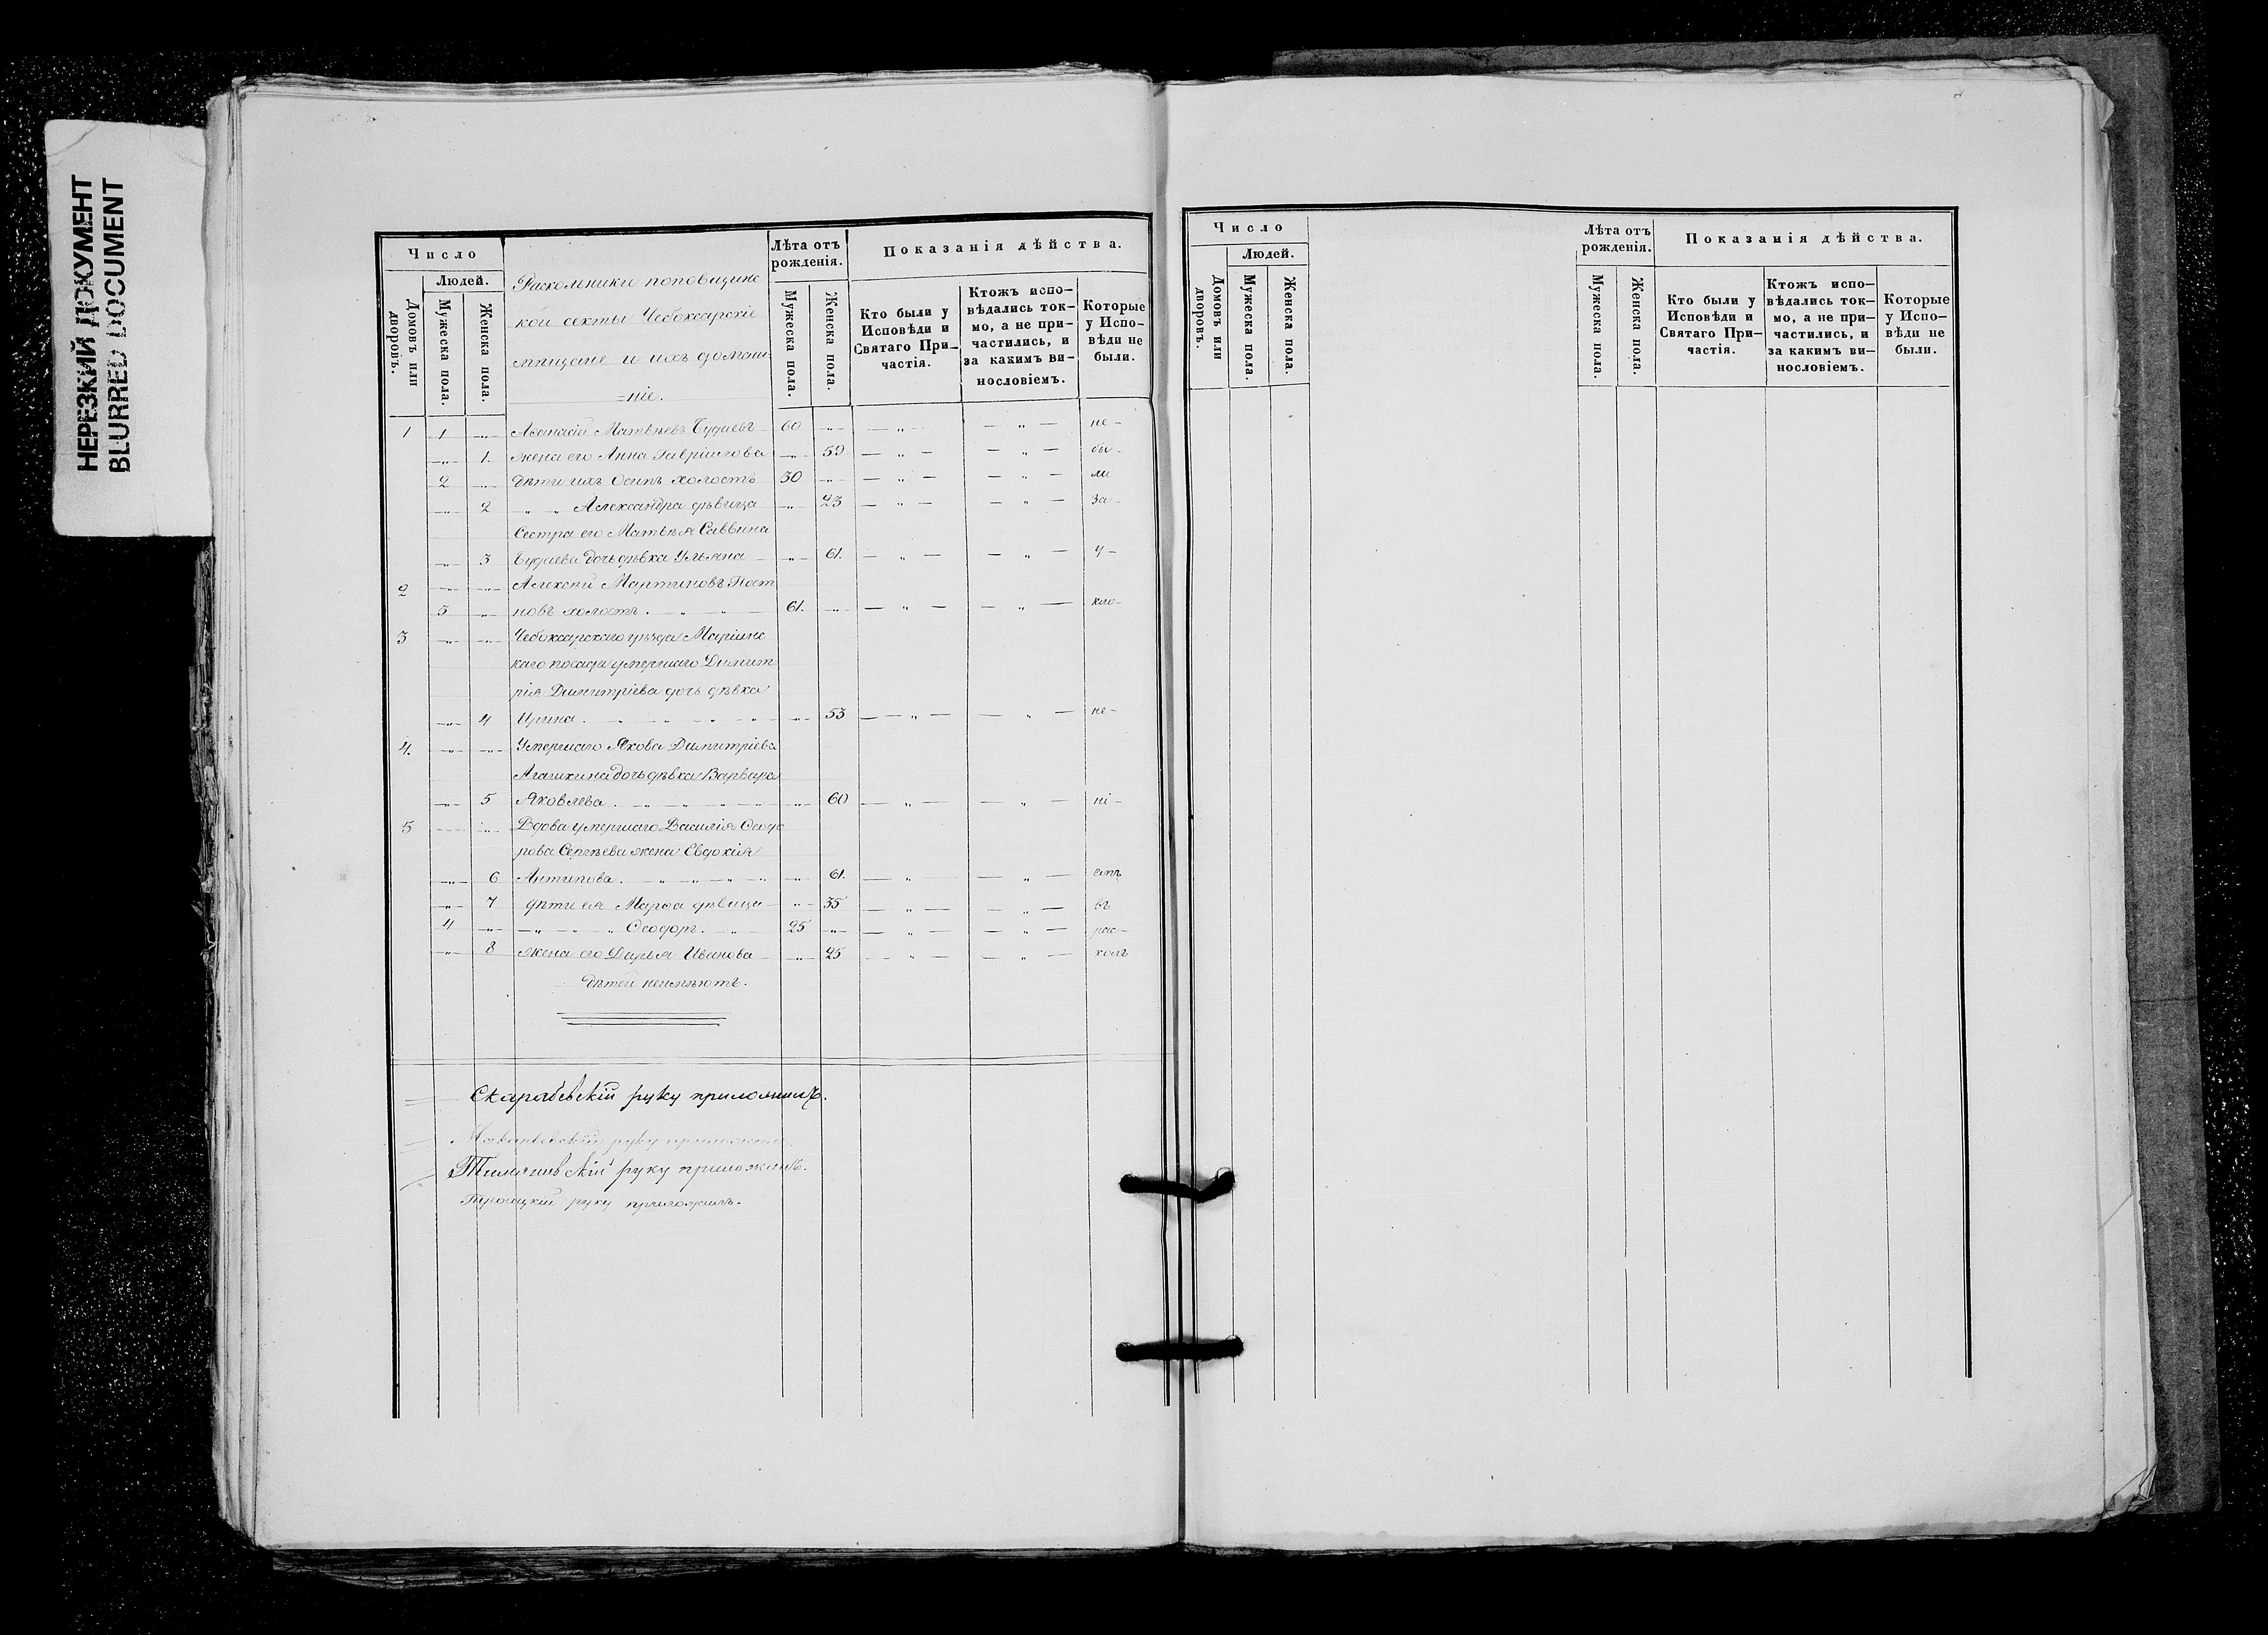 НЕРЕЗКИЙ ДОКУМЕНТ
BLURRED DOCUMENT
Число
Людей.
Домовъ или дворовъ.
Мужеска пола.
Женска пола.
Раскольники поповщинс
кой секты Чебоксарскіе
мѣщане и ихъ домаш
=ніе.
Лѣта отъ рожденія.
Мужеска пола.
Женска пола.
Показанія дѣйства.
Кто были у Исповѣди и Святаго При-частія.
Ктожъ испо-вѣдались ток-мо, а не при-частились, и за какимъ ви-нословіемъ.
Которые у Испо-вѣди не были.
1 1 -„- Аѳанасій Матвѣевъ 60 -„- — „ — — „ — не-
-„- 1. жена его Анна Гавріилова -„- 59 — „ — — „ — бы-
2 -„- дѣти ихъ Осипъ холостъ 30 -„- — „ — — „ — ли
-„- 2 „ „ Александра дѣвица -„- 23 — „ — — „ — за-
Сестра его Матвѣя Саввина
-„- 3 дочь дѣвка Ульяна -„- 61. — „ — — „ — у-
2 -„- -„- Алексѣй Мартиновъ
5 -„- новъ холостъ. „ „ 61. -„- — „ — — „ — кло-
3 -„- -„- Чебоксарскаго уѣзда Маріинс
каго посада умершаго Димит
рія Димитріева дочь дѣвка
-„- 4 Ирина. „ „ „ „ -„- 53 — „ — — „ — не-
4. -„- -„- Умершаго Якова Димитріева
Агашкина дочь дѣвка Варвара
-„- 5 Яковлева. „ „ „ „ -„- 60 — „ — — „ — ні-
5 -„- -„- Вдова умершаго Василія Ѳеодо
рова Сергѣева жена Евдокія
-„- 6 Антипова. „ „ „ „ -„- 61. — „ — — „ — емъ
-„- 7 дѣти ея Марѳа дѣвица -„- 35 — „ — — „ — въ
4 -„- „ „ „ Ѳеодоръ. „ 25 -„- — „ — — „ — рас-
-„- 8 жена его Дарья Иванова -„- 25 — „ — — „ — колъ
дѣтей неимѣютъ.
руку приложилъ.
руку приложилъ.
руку приложилъ.
Троицкій руку приложилъ.
Число
Людей.
Домовъ или дворовъ.
Мужеска пола.
Женска пола.
Лѣта отъ рожденія.
Мужеска пола.
Женска пола.
Показанія дѣйства.
Кто были у Исповѣди и Святаго При-частія.
Ктожъ испо-вѣдались ток-мо, а не при-частились, и за какимъ ви-нословіемъ.
Которые у Испо-вѣди не были.